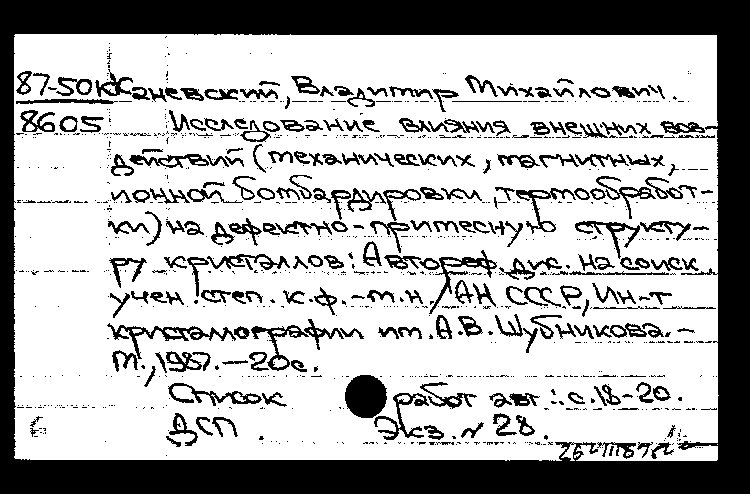 87-50к Каневский, Владимир Михайлович.
8605 Исследование влияния внешних воз-
действий (механических, магнитных,
ионной бомбардировки, термообработ-
ки) на дефектно-примесную структу-
ру кристаллов: Автореф. дис. на соиск.
учен. степ. к.ф.-м.н. / АН СССР, Ин-т
кристаллографии им. А.В. Шубникова. -
М., 1987. - 20с.
Список работ авт.: с.18-20.
ДСП. Экз. № 28.